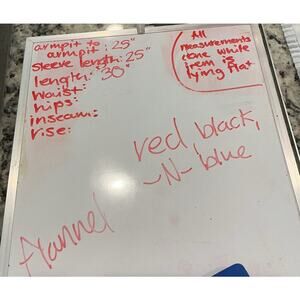 armpit to
armpit: 25"
sleeve length: 25"
length: 30"
waist:
hips:
inseam:
rise:
All
measurements
done while
item is
lying flat
red black,
-N- blue
flannel